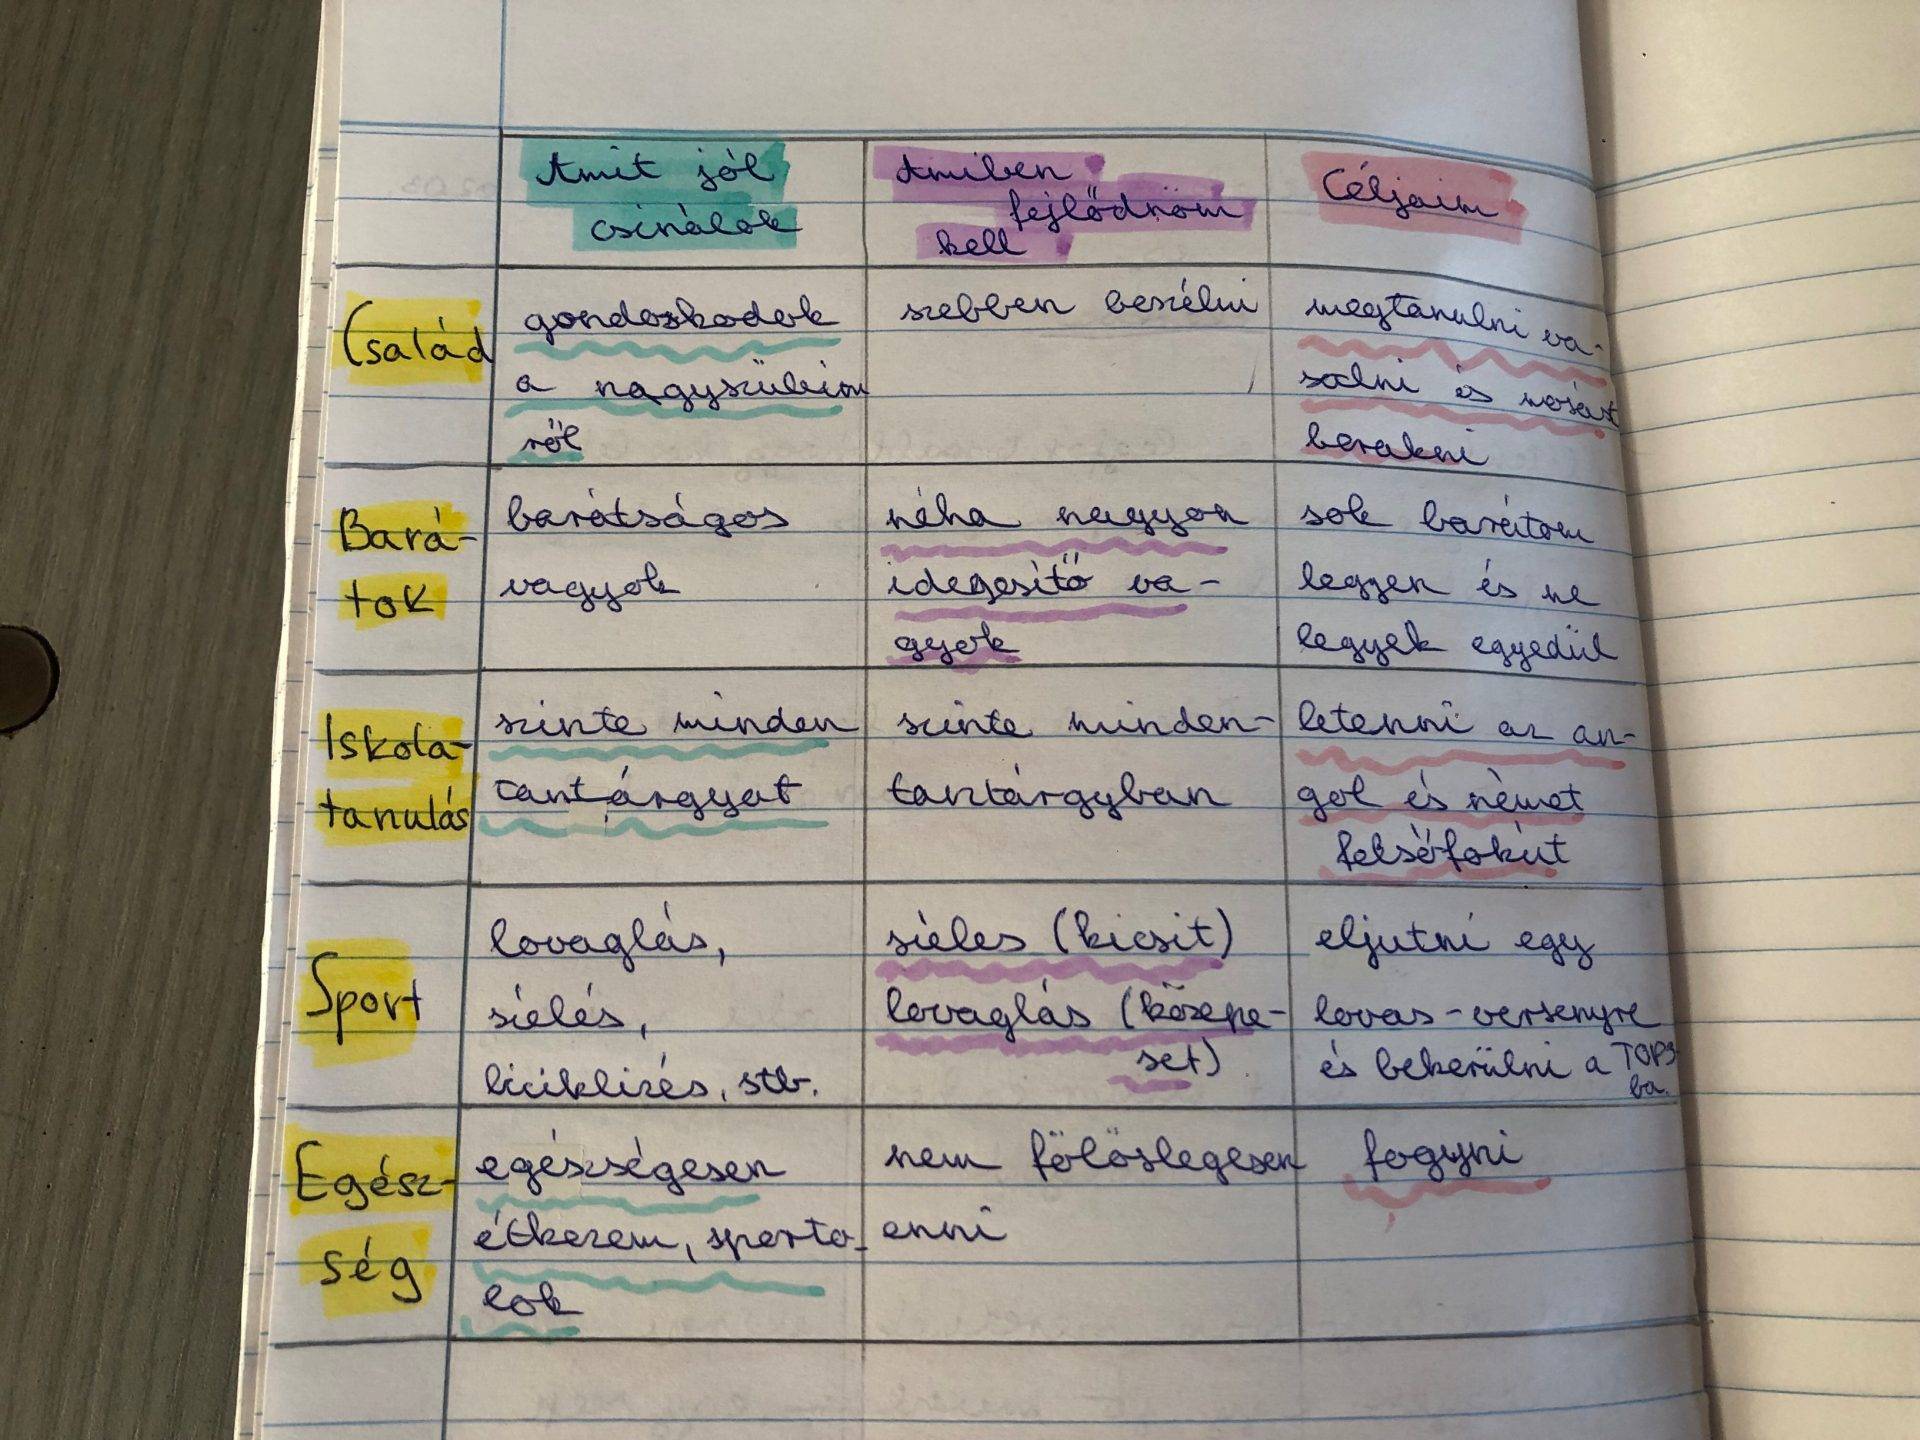 Amit jól
csinálok
Amiben
fejlődnöm
kell
Céljaim
Család
gondoskodok
a nagyszüleim
ről
szebben beszélni
megtanulni va-
salni és mosást
berakni
Bará-
tok
barátságos
vagyok
néha nagyon
idegesítő va-
gyok
sok barátom
legyen és ne
legyek egyedül
Iskola-
tanulás
szinte minden
tantárgyat
szinte minden-
tantárgyban
letenni az an-
gol és német
felsőfokút
Sport
lovaglás,
síelés,
biciklizés, stb.
síeles (kicsit)
lovaglás (közepe-
set)
eljutni egy
lovas-versenyre
és bekerülni a TOP3-
ba.
Egész-
ség
egészségesen
étkezem, sporto-
lok
nem fölöslegesen
enni
fogyni